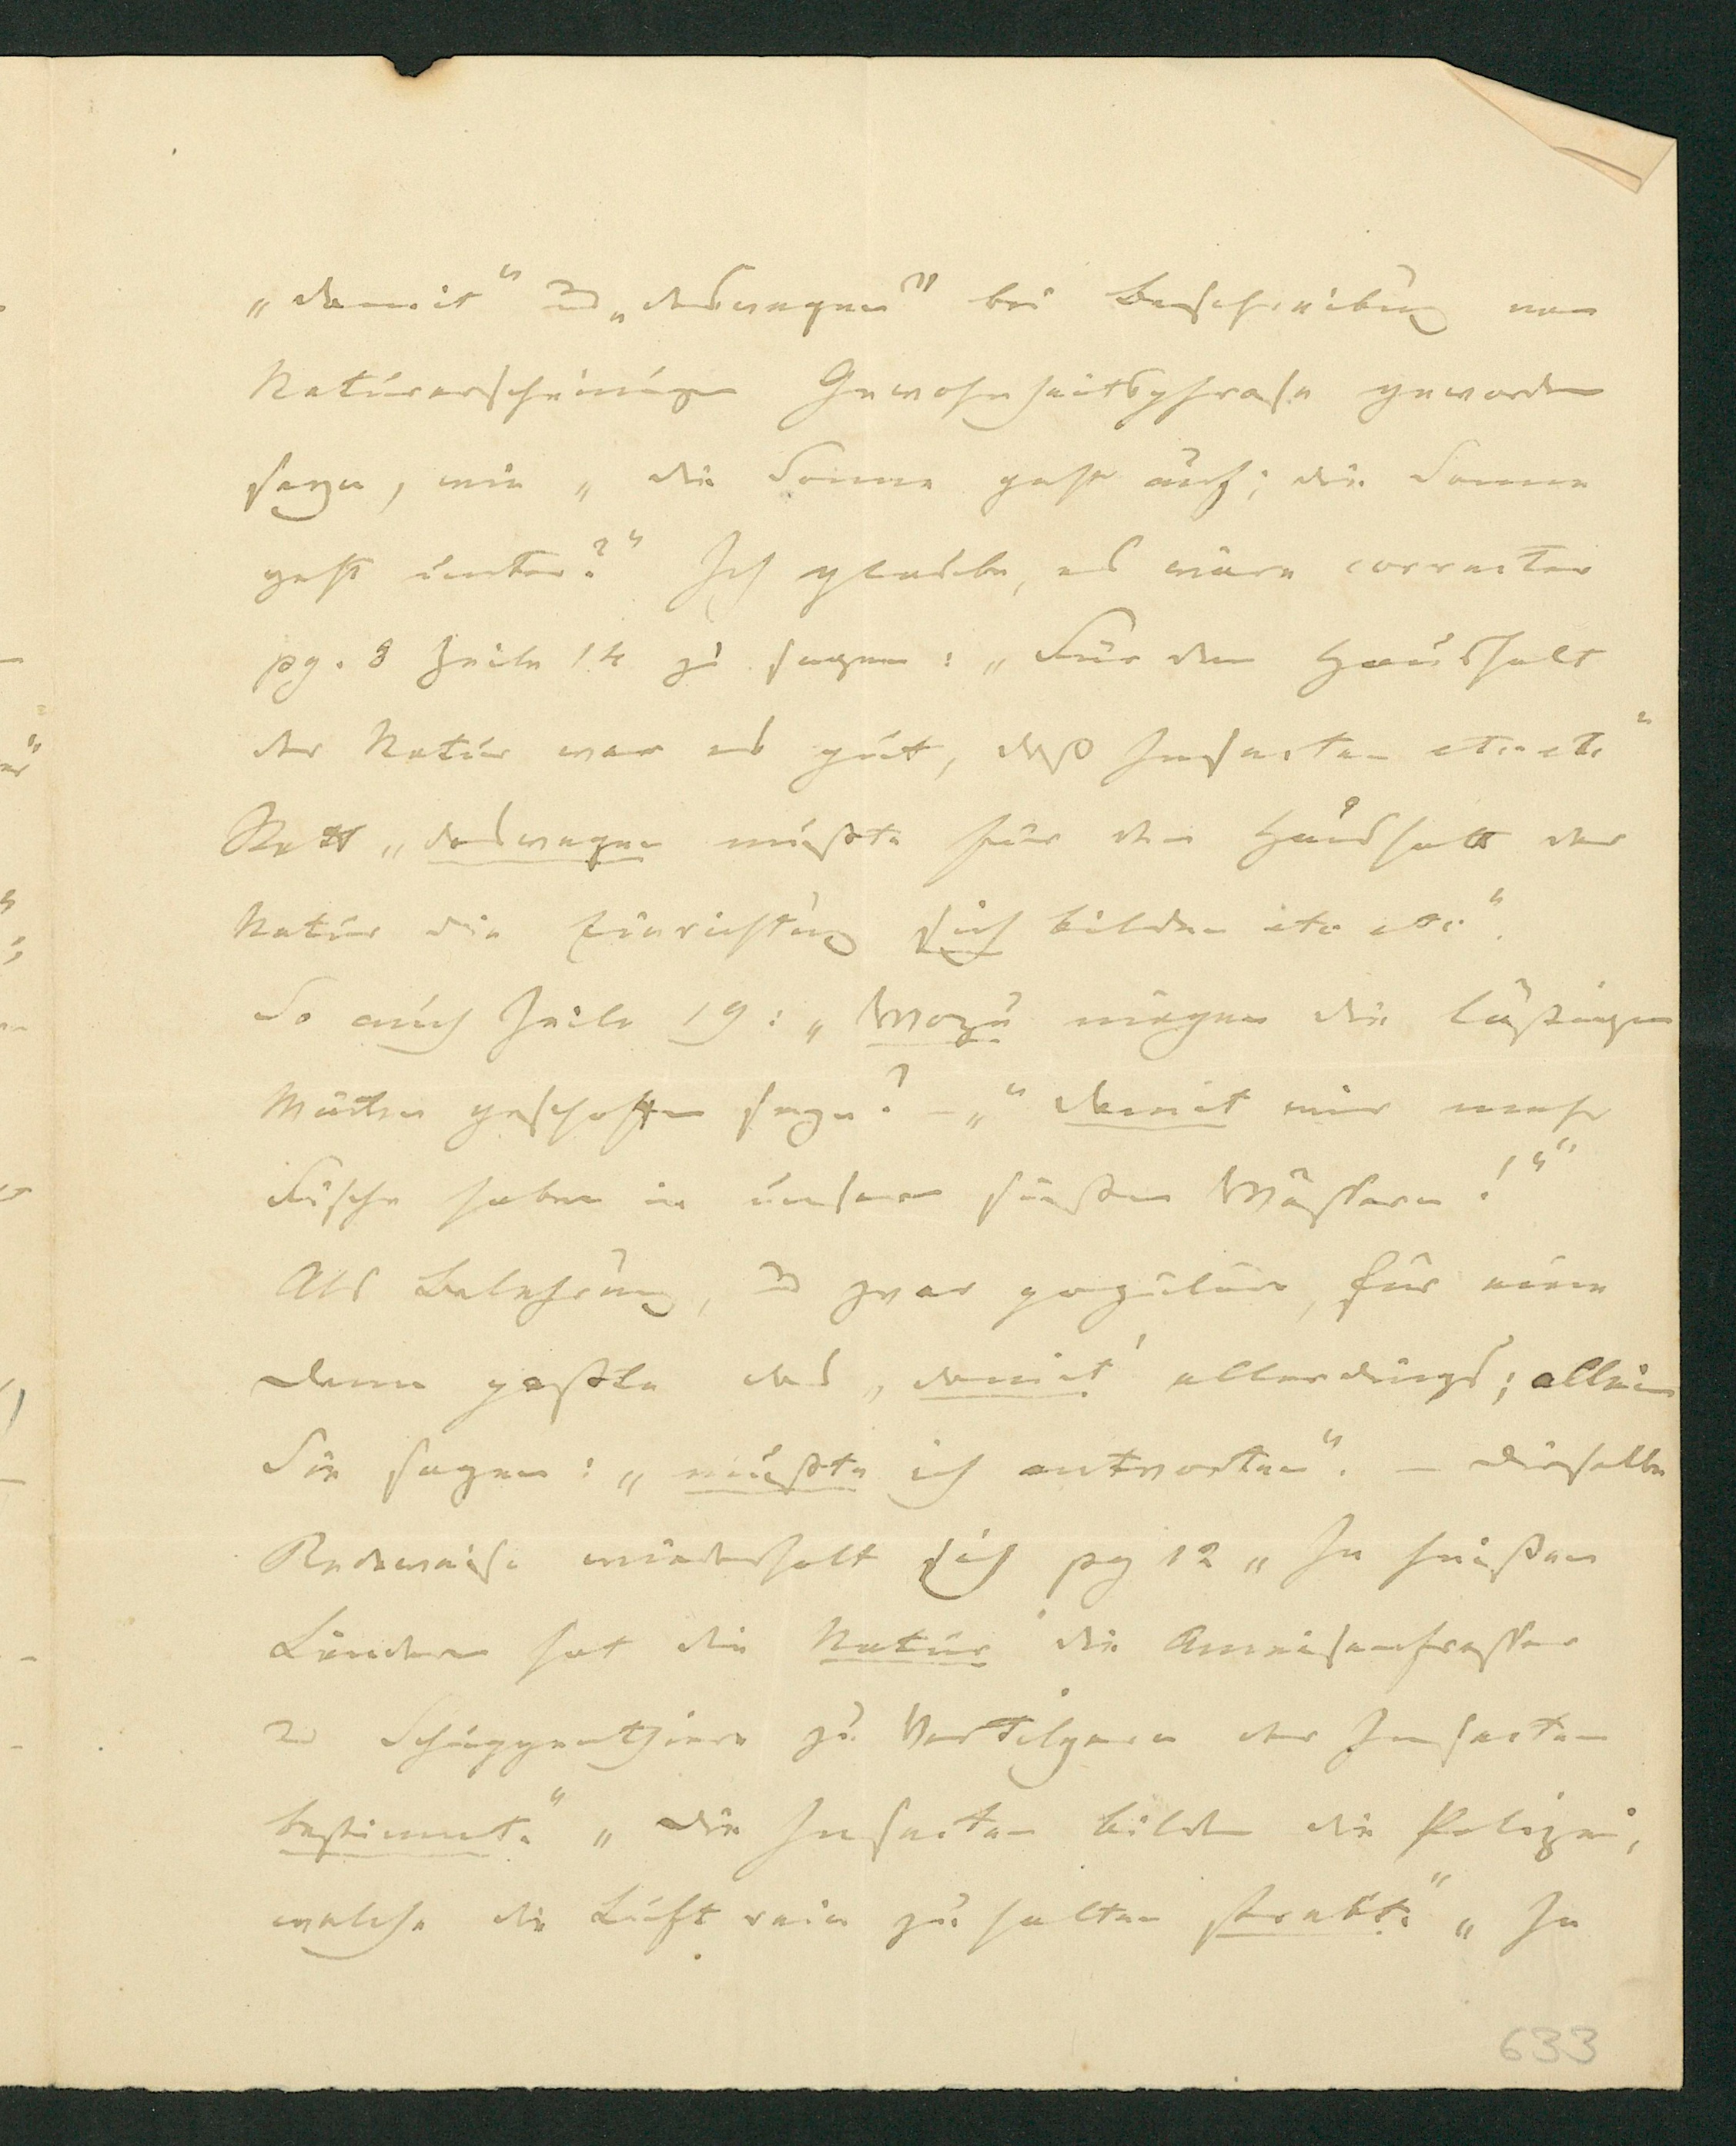 „damit“ und „deswegen“ bei Beschreibung von
Naturerscheinungen Gewohnheitsphrase geworden
seyn, wie „die Sonne geht auf; die Sonne
geht unter?“ Ich glaube, es wäre correcter
pg. 8 Zeile 14 zu sagen: „Für den Haushalt
der Natur war es gut, daß Insecten etc etc“
statt „deswegen mußte für den Haushalt der
Natur die Einrichtung sich bilden etc etc“.
So auch Zeile 19: „Wozu mögen die lästigen
Mücken geschaffen seyn? – „“ damit wir mehr
Fische haben in unsern süßen Wässern!““
Als Belehrung, und zwar populäre, für eine
Dame paßte das „damit“ allerdings; allein
Sie sagen: „mußte ich antworten“. – Dieselbe
Redeweise wiederholt sich pg 12 „In heißen
Ländern hat die Natur die Ameisenfresser
und Schuppenthiere zu Vertilgern der Insecten
bestimmt.“ „Die Insecten bilden die Polizei,
welche die Luft rein zu halten strebt.“ „In
633